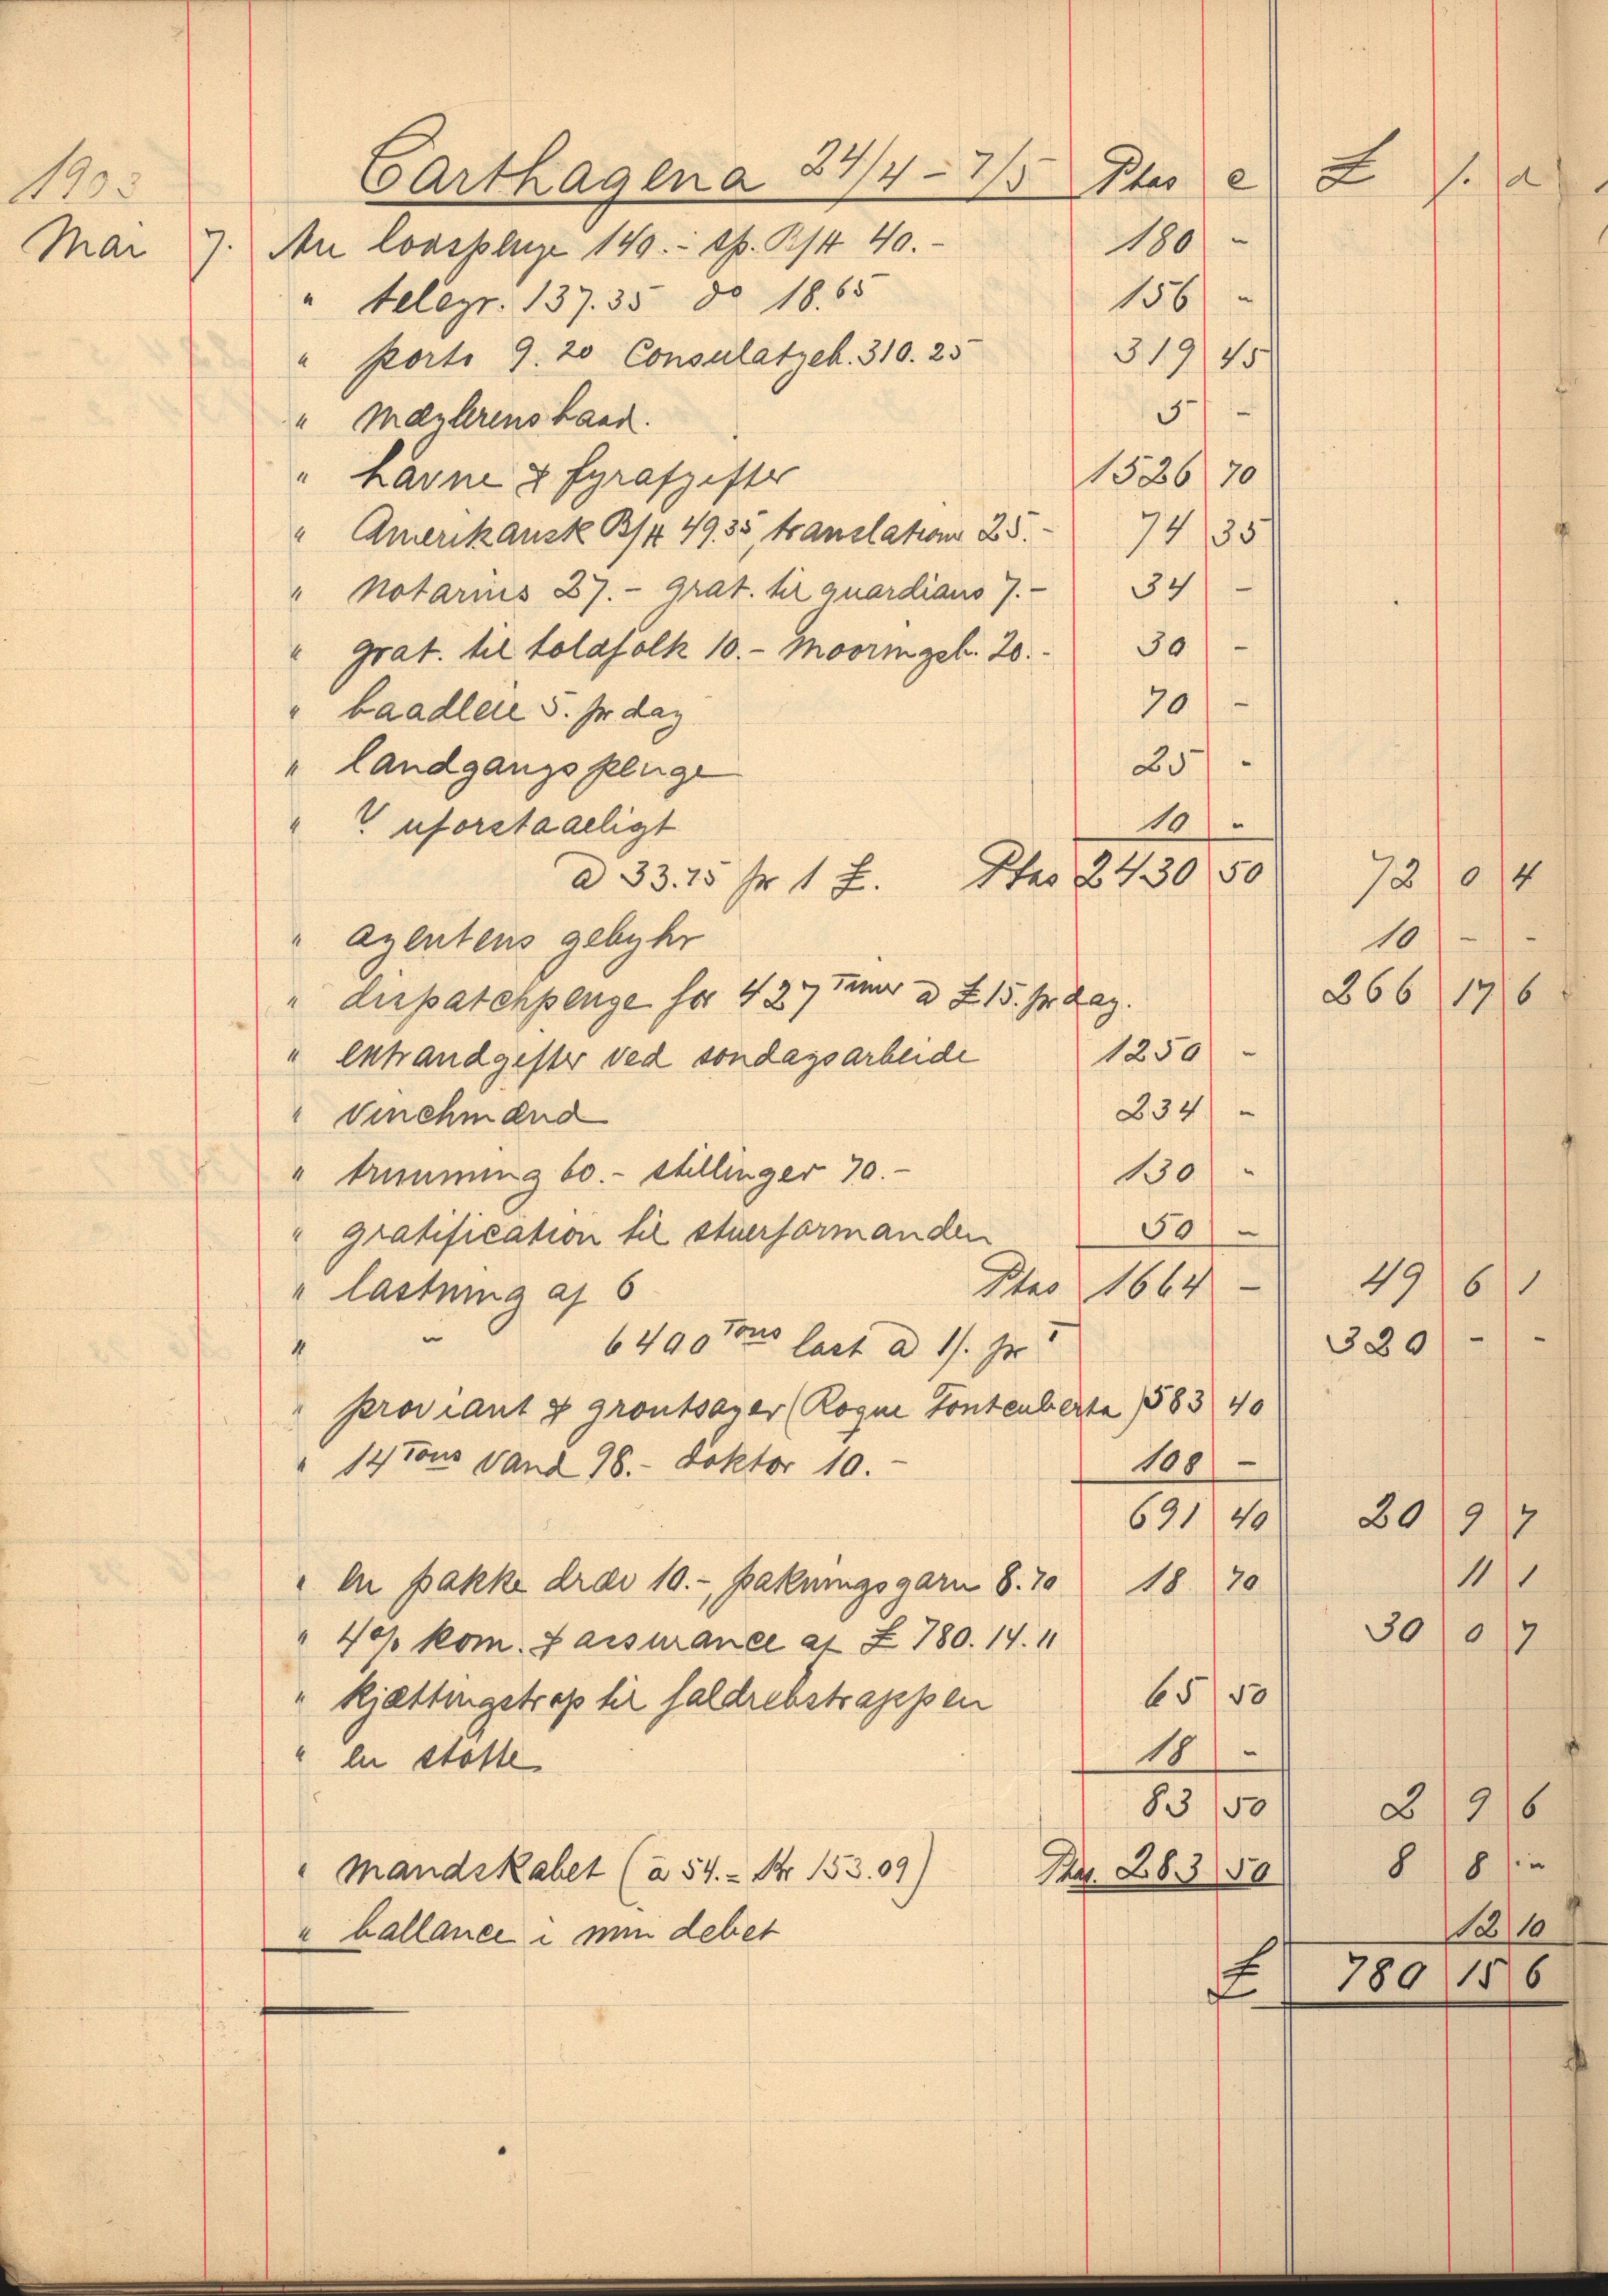 Carthagena 24/4 - 7/5 Ptas c £ s. d
1903
Mai 7. An lodspenge 140.- sp. B/H 40.- 180 -
" telegr. 137.35 do 18.65 156 -
" porto 9.20 Consulatgeb. 310.25 319 45
" mæglerens baad. 5 -
" havne & fyrafgifter 1526 70
" Amerikansk B/H 49.35, translation 25.- 74 35
" Notarius 27.- grat. til guardians 7.- 34 -
" grat. til toldfolk 10.- Mooringgeb. 20.- 30 -
" baadleie 5. pr dag 70 -
" landgangspenge 25 -
" ? uforstaaeligt 10 -
a 33.75 pr 1 £. Ptas 2430 50 72 0 4
" agentens gebyhr 10 - -
" dispatchpenge for 427 Timer a £ 15. pr dag. 266 17 6
" extraudgifter ved søndagsarbeide 1250 -
" Vinchmænd 234 -
" trimming 60.- stillinger 70.- 130 -
" gratification til stuerformanden 50 -
" lastning af 6 Ptas 1664 - 49 6 1
" " 6400 Tons last a 1/. pr T 320 - -
" proviant & grøntsager (Roque Fontenberta) 583 40
" 14 Tons Vand 98.- doktor 10.- 108 -
691 40 20 9 7
" en pakke dræi 10.-, pakningsgarn 8.70 18 70 11 1
" 4% kom. & assurance af £ 780.14.11 30 0 7
" kjættingstrop til faldrebstrappen 65 50
" en støtte 18 -
83 50 2 9 6
" mandskabet (a 54.- Kr 153.09) Ptas. 283 50 8 8 -
" ballance i min debet 12 10
£ 780 15 6